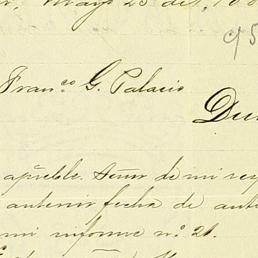 Mayo 23 de 1
95
Fran.co G. Palacio
Du
apreble. Señor de mi res
anterior fecha de ante
mi informe n.o 21.